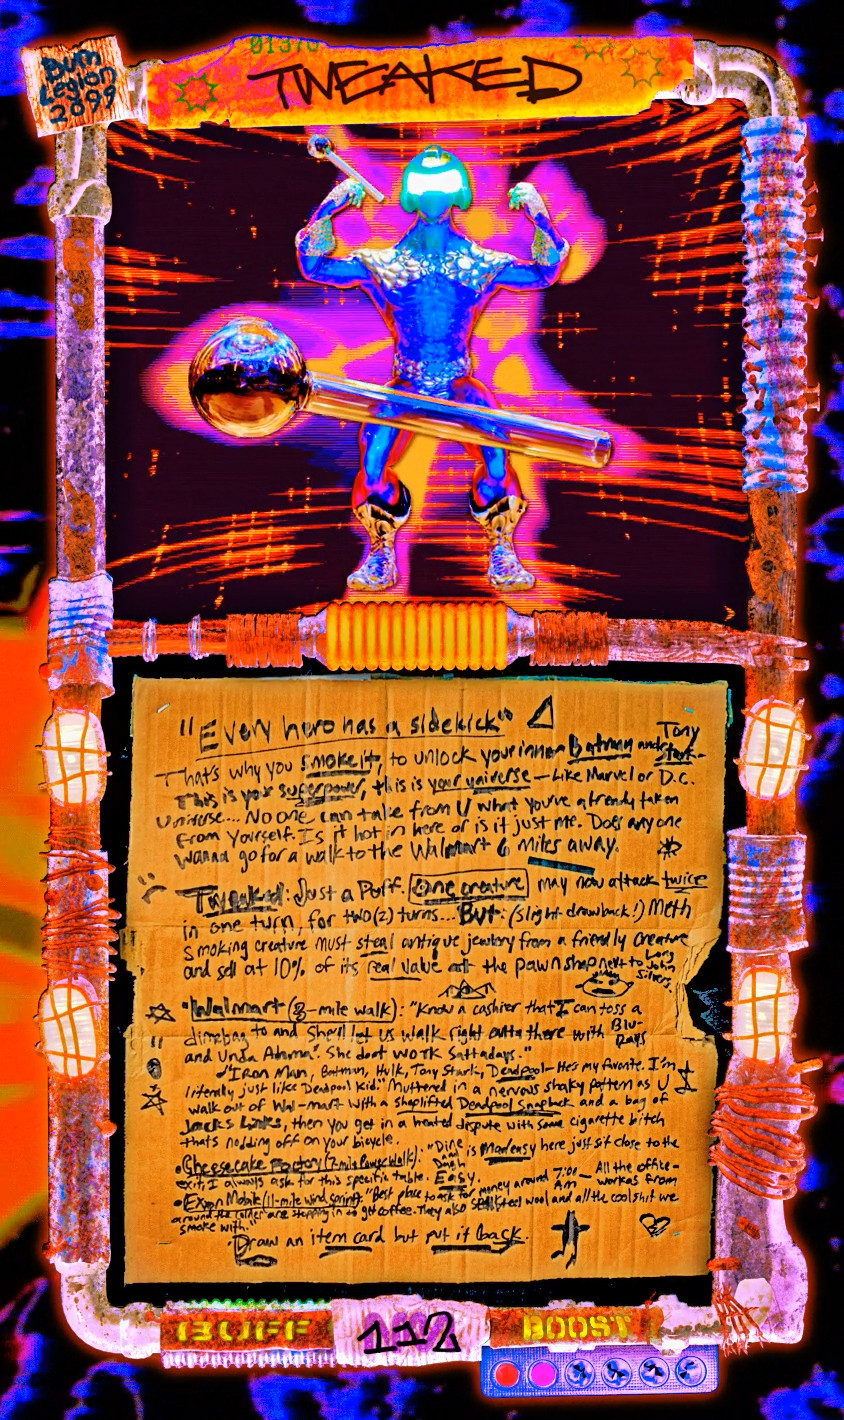 01370
Bum
Legion
2099
TWEAKED
"Every hero has a sidekick"
That's why you smoke it, to unlock your inner Batman and Tony Stark.
This is your superpower, this is your universe — Like Marvel or D.C.
Universe... No one can take from U what you've already taken
from yourself. Is it hot in here or is it just me. Does any one
wanna go for a walk to the Walmart 6 miles away.
Tweaked: Just a Puff. One creature may now attack twice
in one turn, for two (2) turns... But: (slight drawback!) Meth
smoking creature must steal antique jewlery from a friendly creature
and sell at 10% of its real value at the pawn shop next to Long John Silvers.
Walmart (8-mile walk): "Know a cashier that I can toss a
dimebag to and She'll let us walk right outta there with Blu-Rays
and Unda Adama". She dont work Sattadays."
"Iron Man, Batman, Hulk, Tony Stark, Deadpool — He's my favorite. I'm
literally just like Deadpool kid." Muttered in a nervous shaky pattern as U
walk out of Wal-mart with a shoplifted Deadpool Snapback and a bag of
Jacks Links, then you get in a heated dispute with some cigarette bitch
thats nodding off on your bicycle.
• Cheesecake Factory (7-mile Power Walk): "Dine and Dash is Mad easy here just sit close to the
exit, I always ask for this specific table. Easy.
• Exxon Mobile (11-mile wind spring): "Best place to ask for money around 7:00 Am — All the office-workas from
around the corner are stopping in to get coffee. They also sell steel wool and all the cool shit we
smoke with."
Draw an item card but put it back.
BUFF
112
BOOST